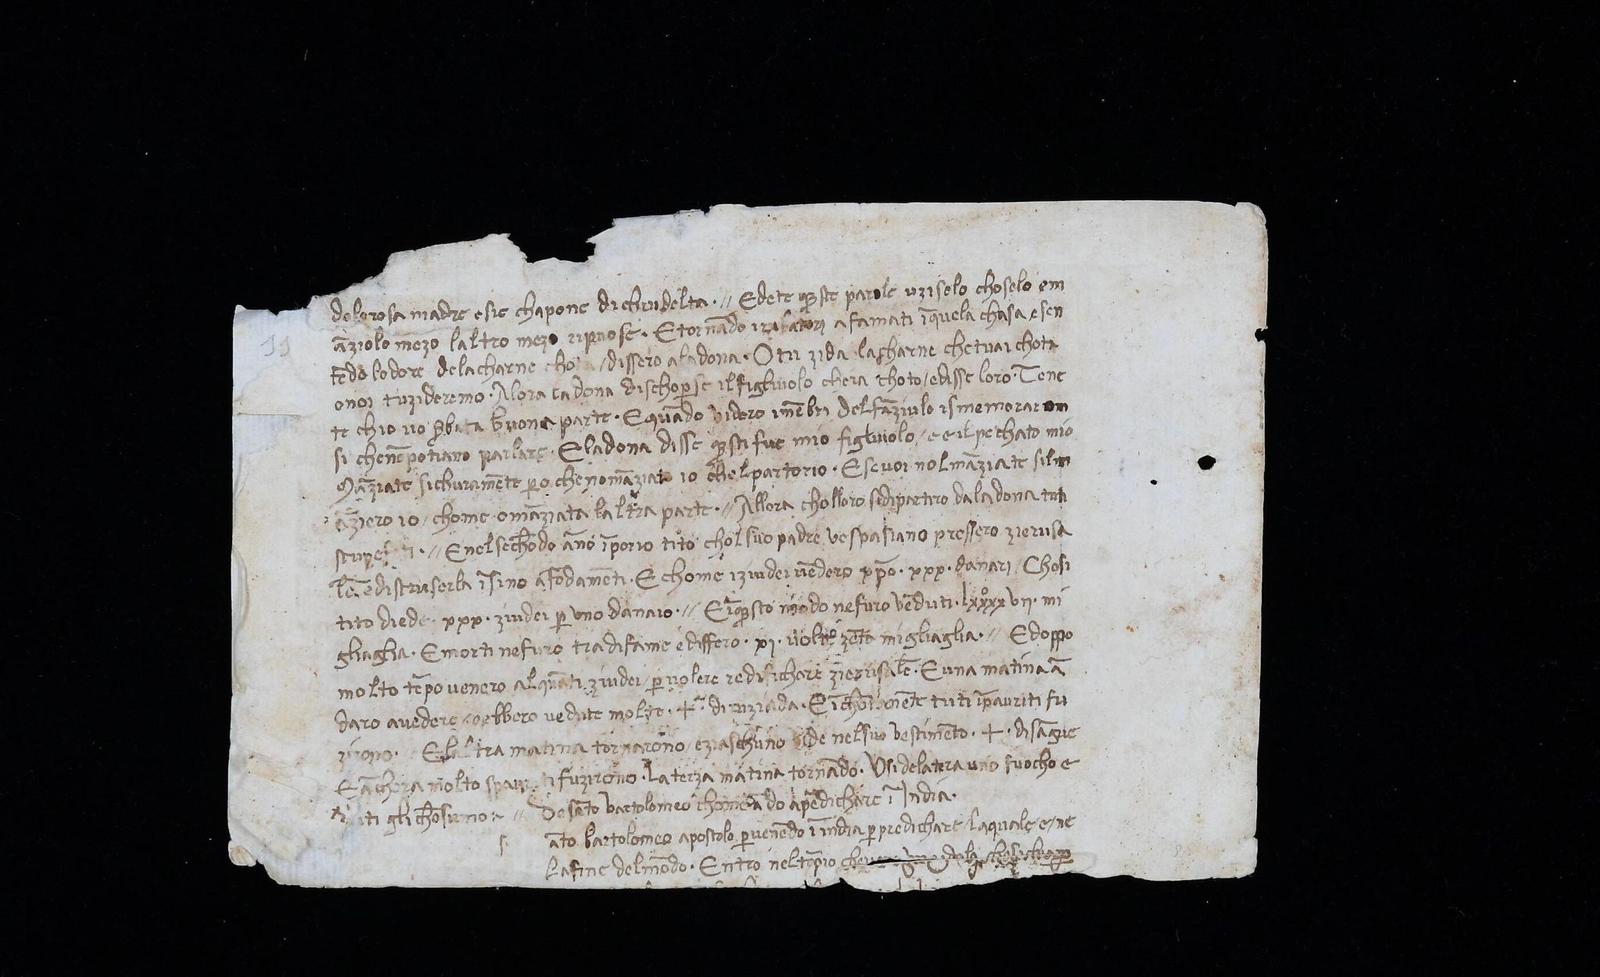 dolorosa madre esie chapone dichrudelta · // Edete q̄ste parole uziselo choselo em
āziolo mezo laltro mezo ripuose · Etornādo izelatori afamati īquela chasa esen
tēdo lodore delacharne chota / dissero aladona · Otu zida lacharne chetuai chota
onoi tuzideremo · Alora ladona dischop̄se ilfigluiolo chera choto / edisse loro · Tene
te chio uo s̄bata buona parte · Equādo videro imēbri delfāziulo ismemoraron
si chenēpotiano parlare · Eladona disse q̄sti fue mio figluiolo / e eilpechato mio
Māziate sichuramēte p̄o chenomāziato io chelpartorio · Esevoi nolmāziate silm
āziero io / chome omāziata laltra parte · // Allora cholloro sedipartiro daladona tuti
Enelsechōdo āno īporio tito cholsuo padre vespasiano pressero zierusa
lē edistruserla īsino afōdamēti · Echome iziudei uēdero xp̄o · xxx · danari / Chosi
tito diede · xxx · ziudei p̄ uno danaio · // Eīq̄sto modo nefuro vēduti · lxxxxvii · mi
gliaglia · Emorti nefuro tradifame ediffero · xi · uolte zēto migliaglia · // Edoppo
molto tēpo uenero alquāti ziudei / p̄uolere redifichare zierusalē · Euna matina ā
daro auedere / oebbero vedute molte · + · diruziada · Eīchōtanēte tuti īpauriti fu
zirono · Elaltra matina tornarono / eziaschuno vide nelsuo vestimēto · + · disāgue
Eāchora molto spauriti fuzirono · Laterza matina tornādo · Usi delatera uno fuocho e
tuti gli chōsumo · // De sāto bartolomeo chome ādo ap̄edichare ī India ·
āto bartolomeo apostolo p̄uenēdo ī india p̄predichare laquale e / ne
lafine delmōdo · Entro neltēpio